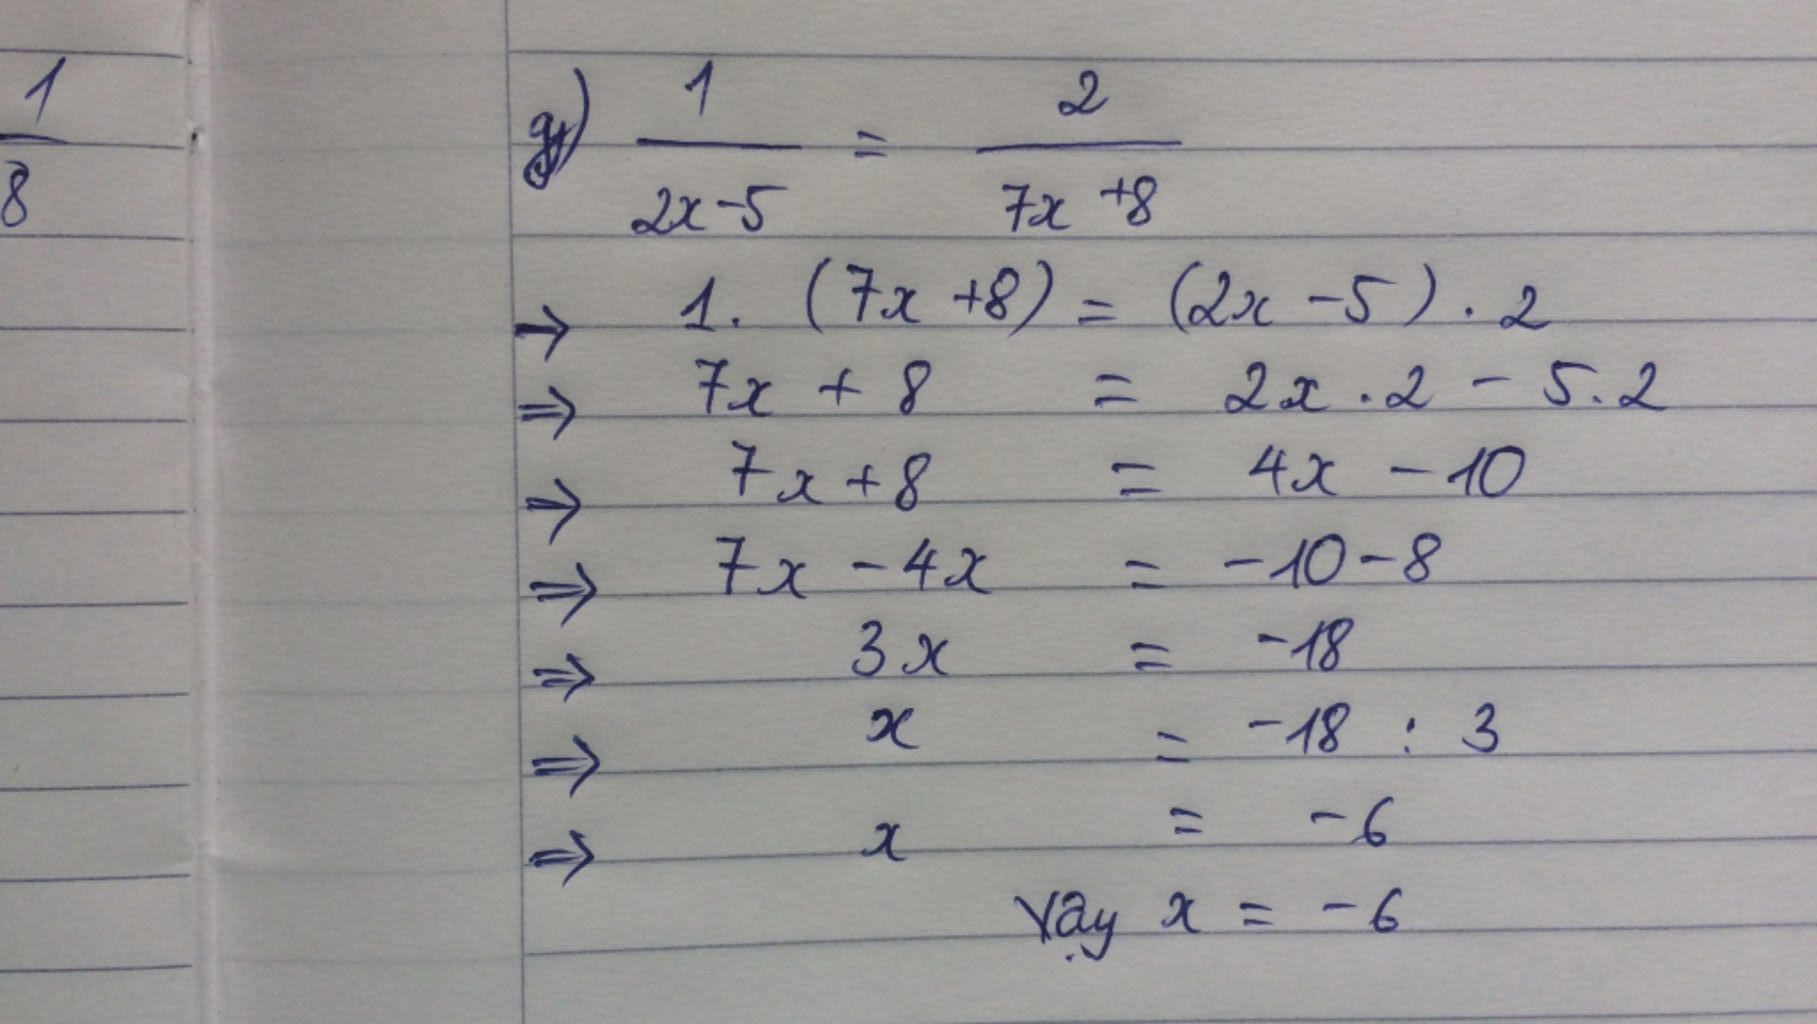 1
8
g) 1/(2x-5) = 2/(7x+8)
→ 1. (7x+8) = (2x-5) . 2
⇒ 7x + 8 = 2x . 2 - 5.2
⇒ 7x+8 = 4x - 10
⇒ 7x - 4x = -10-8
⇒ 3x = -18
⇒ x = -18 : 3
⇒ x = -6
Vậy x = -6